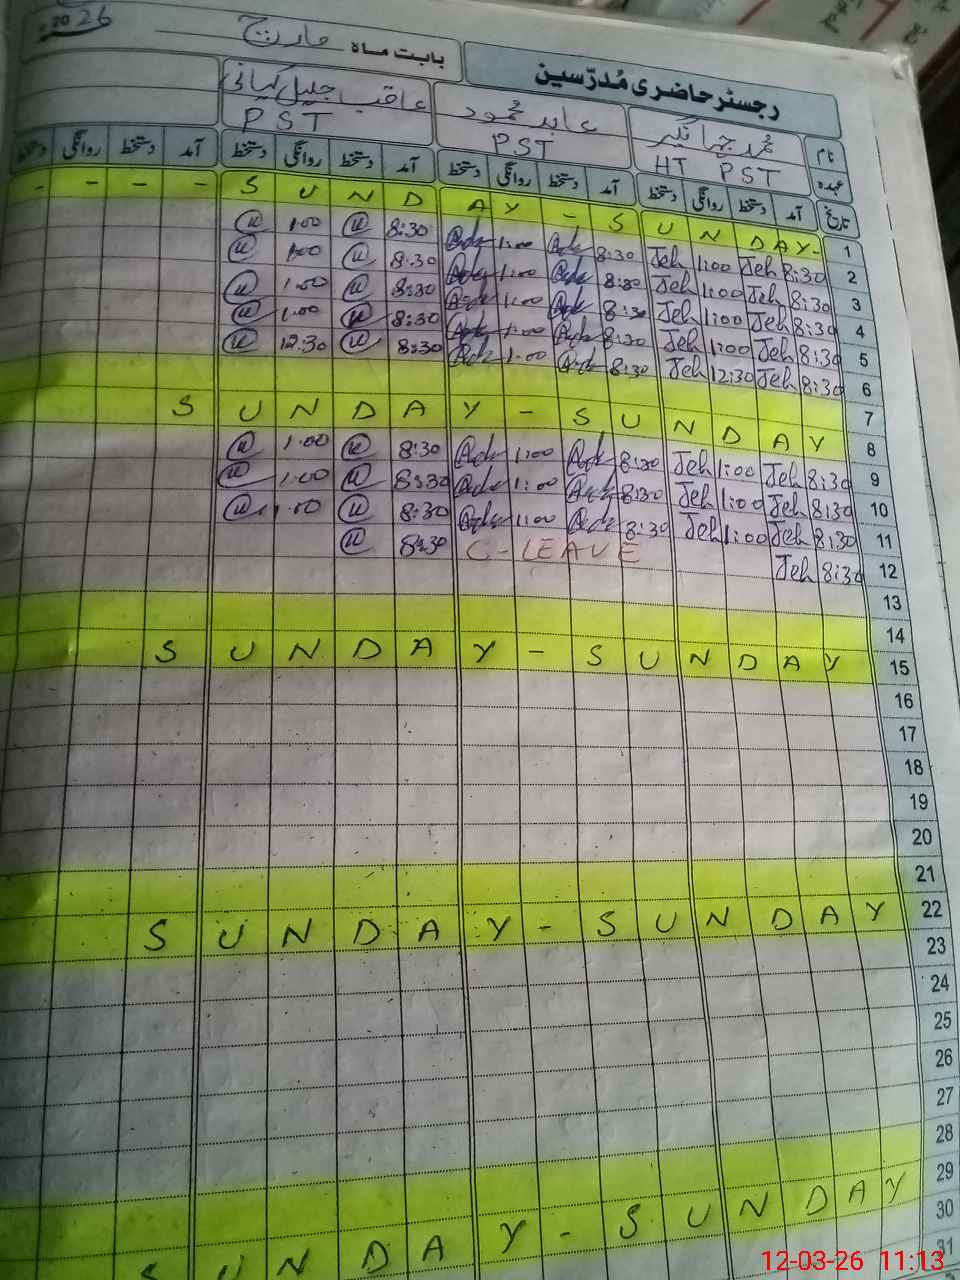 رجسٹر حاضری مُدرّسین بابت ماہ مارچ 2026
نام محمد جہانگیر عابد محمود عاقب جلیل کیانی
عہدہ HT PST PST PST
تاریخ آمد دستخط روانگی دستخط آمد دستخط روانگی دستخط آمد دستخط روانگی دستخط آمد دستخط روانگی دستخط
1 - - - - S U N D A Y - S U N D A Y -
2 8:30 Jeh 1:00 Jeh 8:30 1:00 8:30 1:00
3 8:30 Jeh 1:00 Jeh 8:30 1:00 8:30 1:00
4 8:30 Jeh 1:00 Jeh 8:30 1:00 8:30 1:00
5 8:30 Jeh 1:00 Jeh 8:30 1:00 8:30 1:00
6 8:30 Jeh 12:30 Jeh 8:30 1:00 8:30 12:30
7
8 S U N D A Y - S U N D A Y
9 8:30 Jeh 1:00 Jeh 8:30 1:00 8:30 1:00
10 8:30 Jeh 1:00 Jeh 8:30 1:00 8:30 1:00
11 8:30 Jeh 1:00 Jeh 8:30 1:00 8:30 1:00
12 8:30 Jeh C-LEAVE 8:30
13
14
15 S U N D A Y - S U N D A Y
16
17
18
19
20
21
22 S U N D A Y - S U N D A Y
23
24
25
26
27
28
29 S U N D A Y - S U N D A Y
30
31
12-03-26 11:13